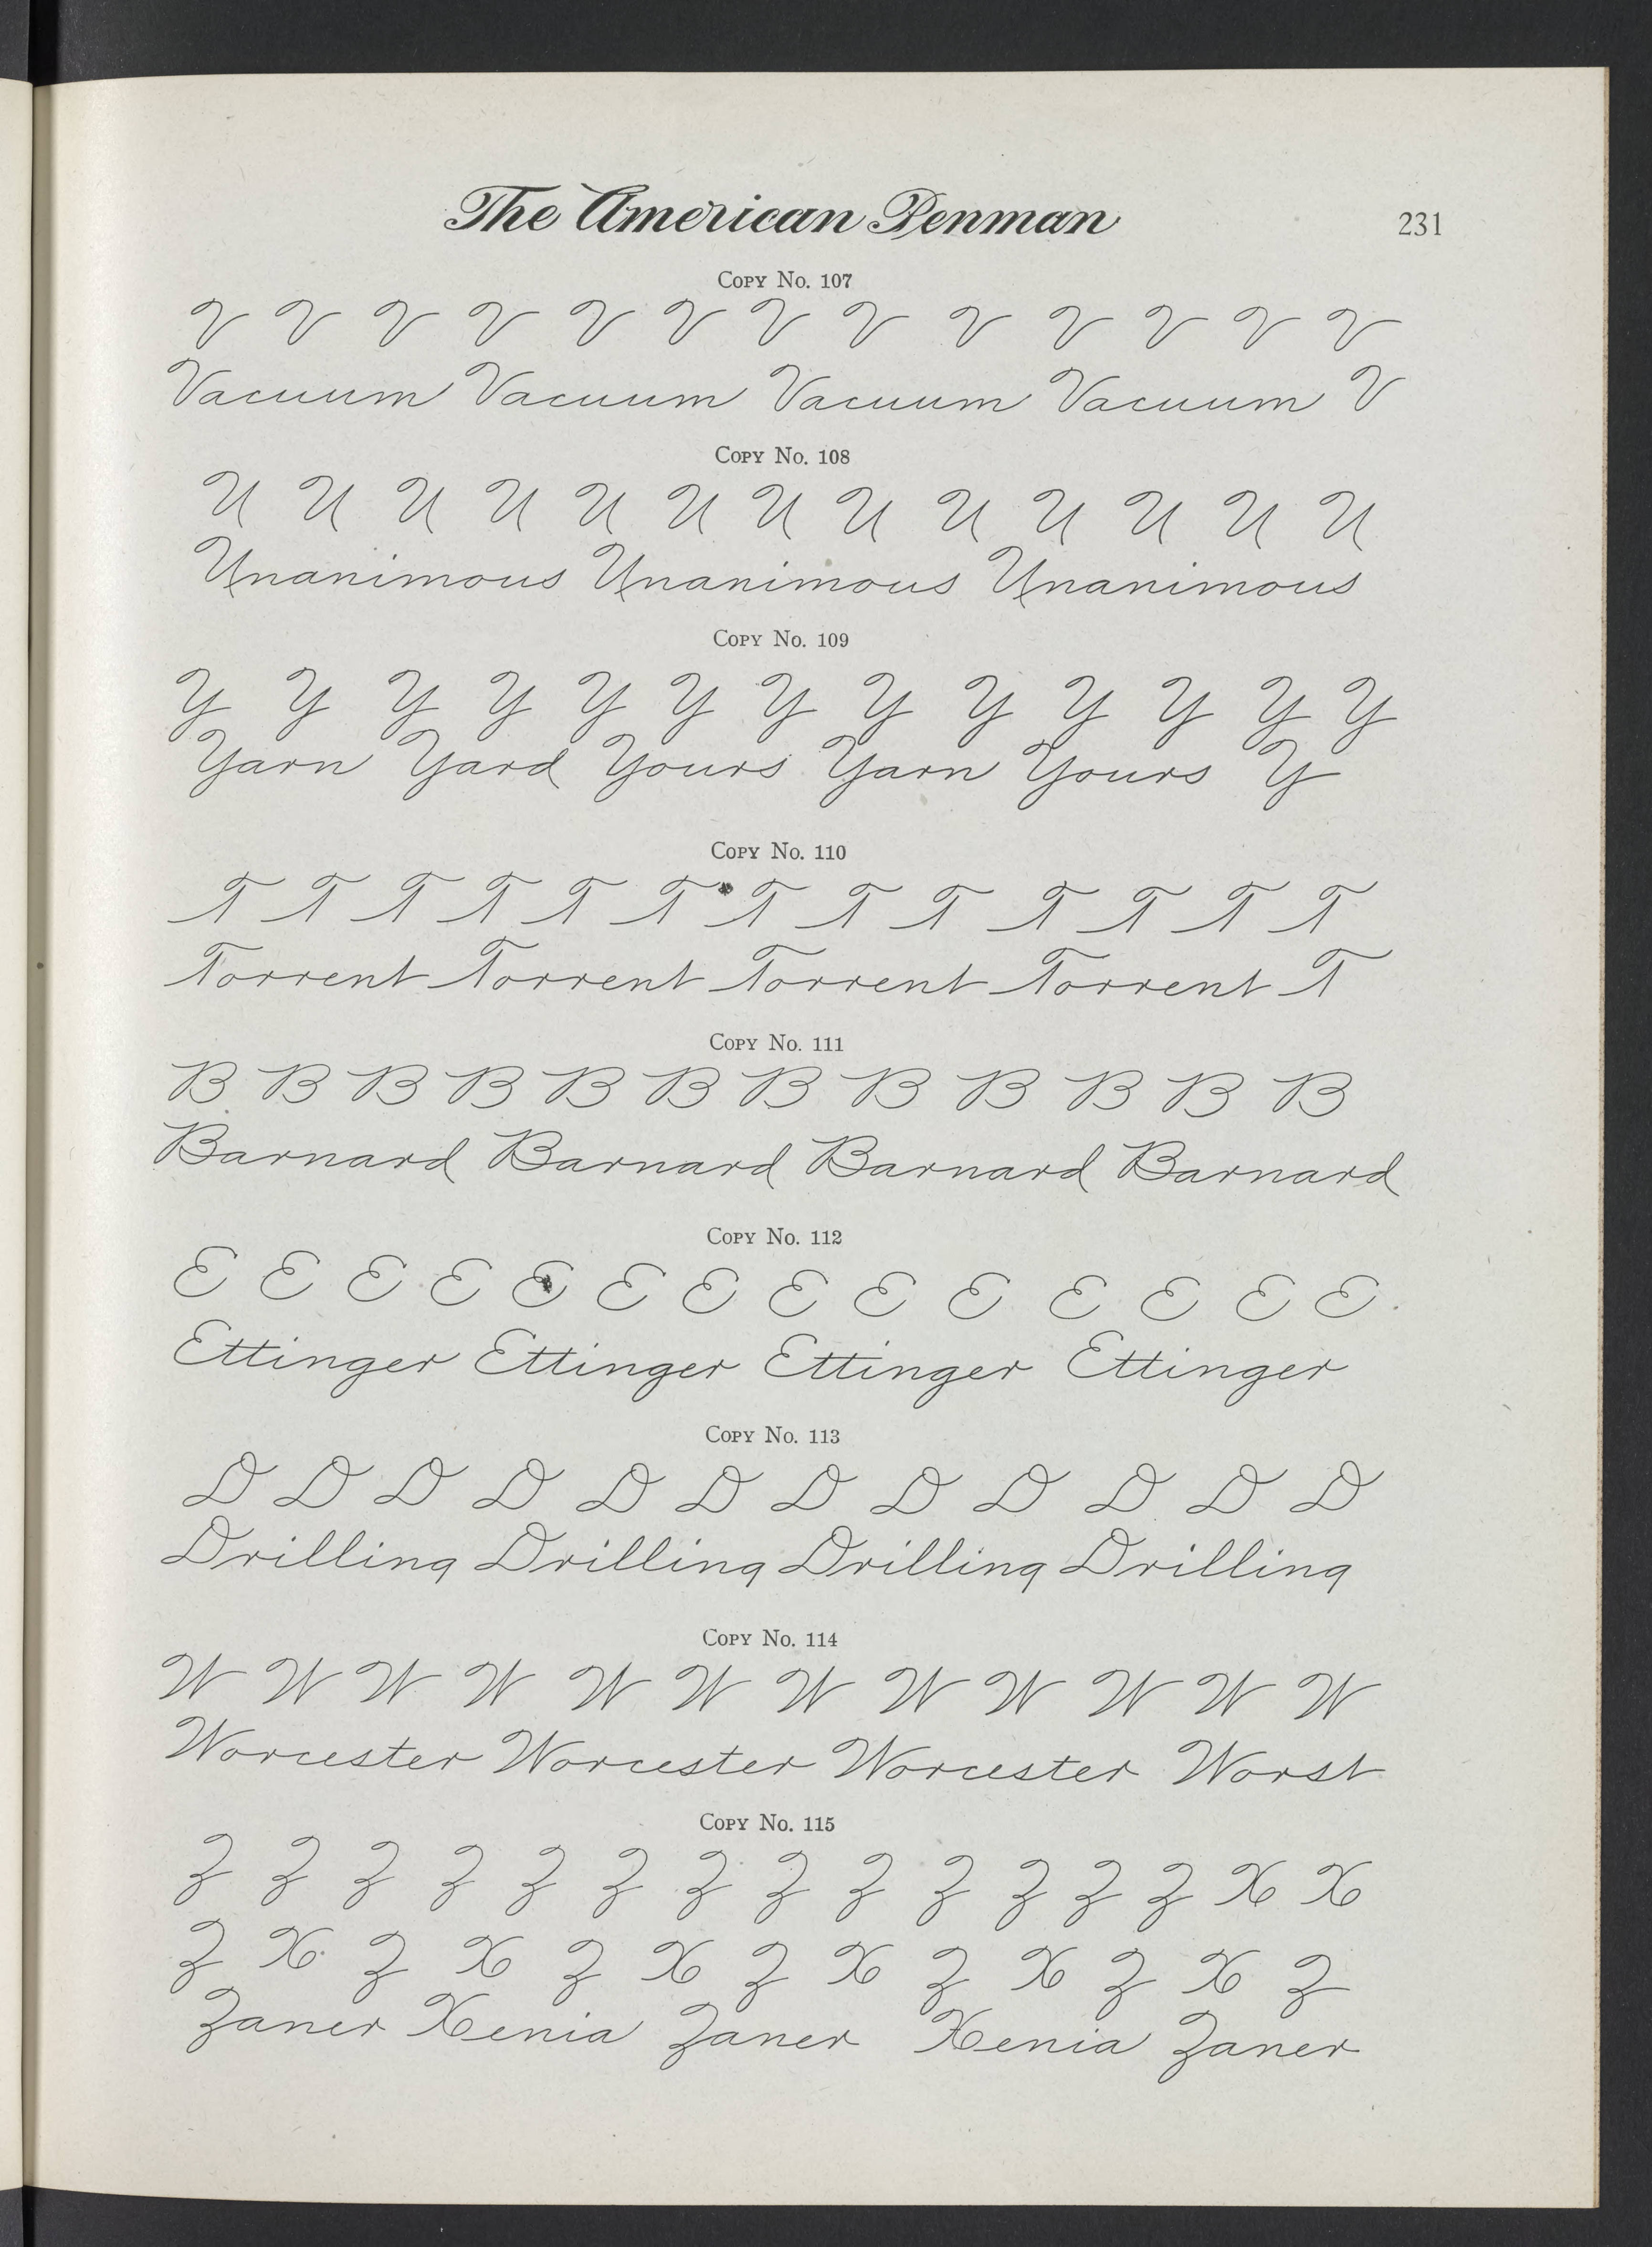 The American Penman 231
Copy No. 107
V V V V V V V V V V V V V
Vacuum Vacuum Vacuum Vacuum V
Copy No. 108
U U U U U U U U U U U U U
Unanimous Unanimous Unanimous
Copy No. 109
Y Y Y Y Y Y Y Y Y Y Y Y Y
Yarn Yard Yours Yarn Yours Y
Copy No. 110
T T T T T T T T T T T T T
Torrent Torrent Torrent Torrent T
Copy No. 111
B B B B B B B B B B B B
Barnard Barnard Barnard Barnard
Copy No. 112
E E E E E E E E E E E E E E
Ettinger Ettinger Ettinger Ettinger
Copy No. 113
D D D D D D D D D D D D
Drilling Drilling Drilling Drilling
Copy No. 114
W W W W W W W W W W W W
Worcester Worcester Worcester Worst
Copy No. 115
Z Z Z Z Z Z Z Z Z Z Z Z Z X X
Z X Z X Z X Z X Z X Z X Z
Zaner Xenia Zaner Xenia Zaner